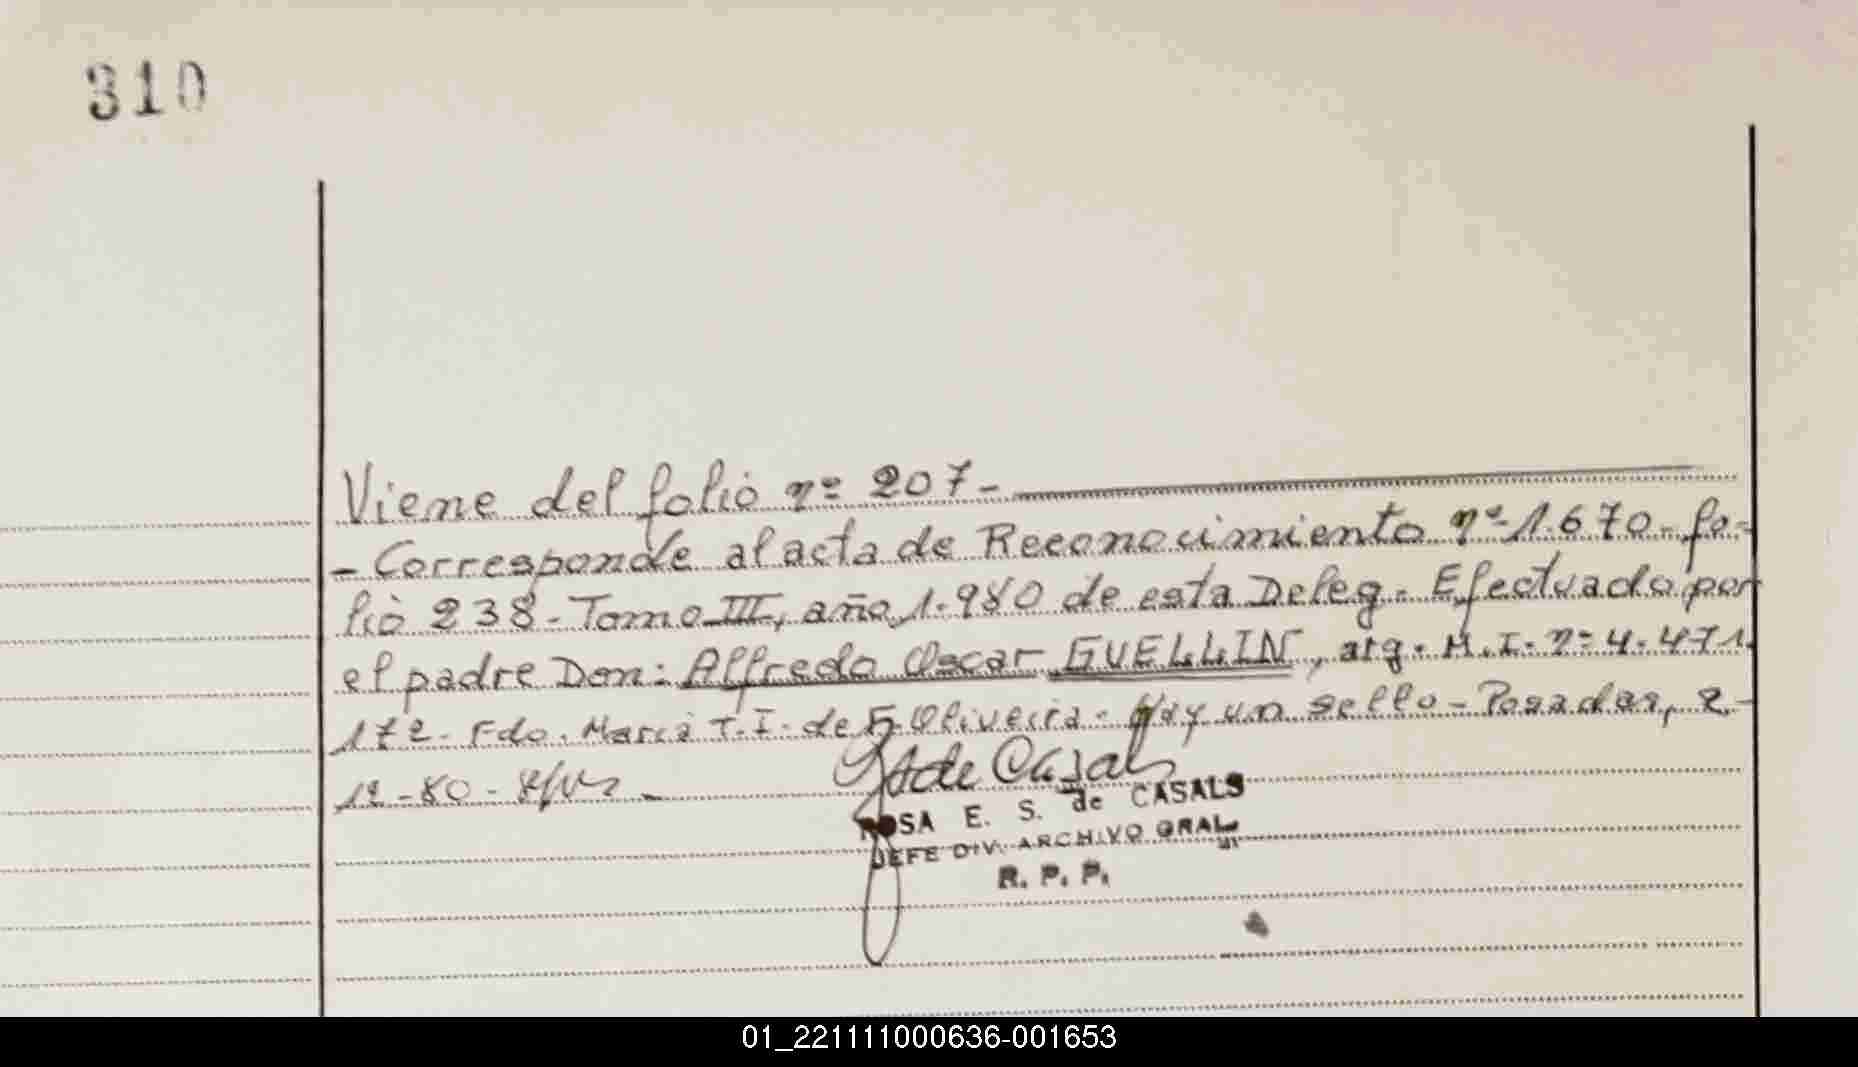 310
Viene del folio nº 207-
- Corresponde al acta de Reconocimiento nº 1.670- fo-
lio 238- Tomo III, año 1.980 de esta Deleg. Efectuado por
el padre Don: Alfredo Oscar GUELLIN, arg. M.I. nº 4.471.
172- Fdo. María T.I. de F. Oliveira- Hay un sello- Posadas, 2-
12-80-
de Casals
ROSA E. S. de CASALS
JEFE DIV. ARCHIVO GRAL
R. P. P.
01_221111000636-001653